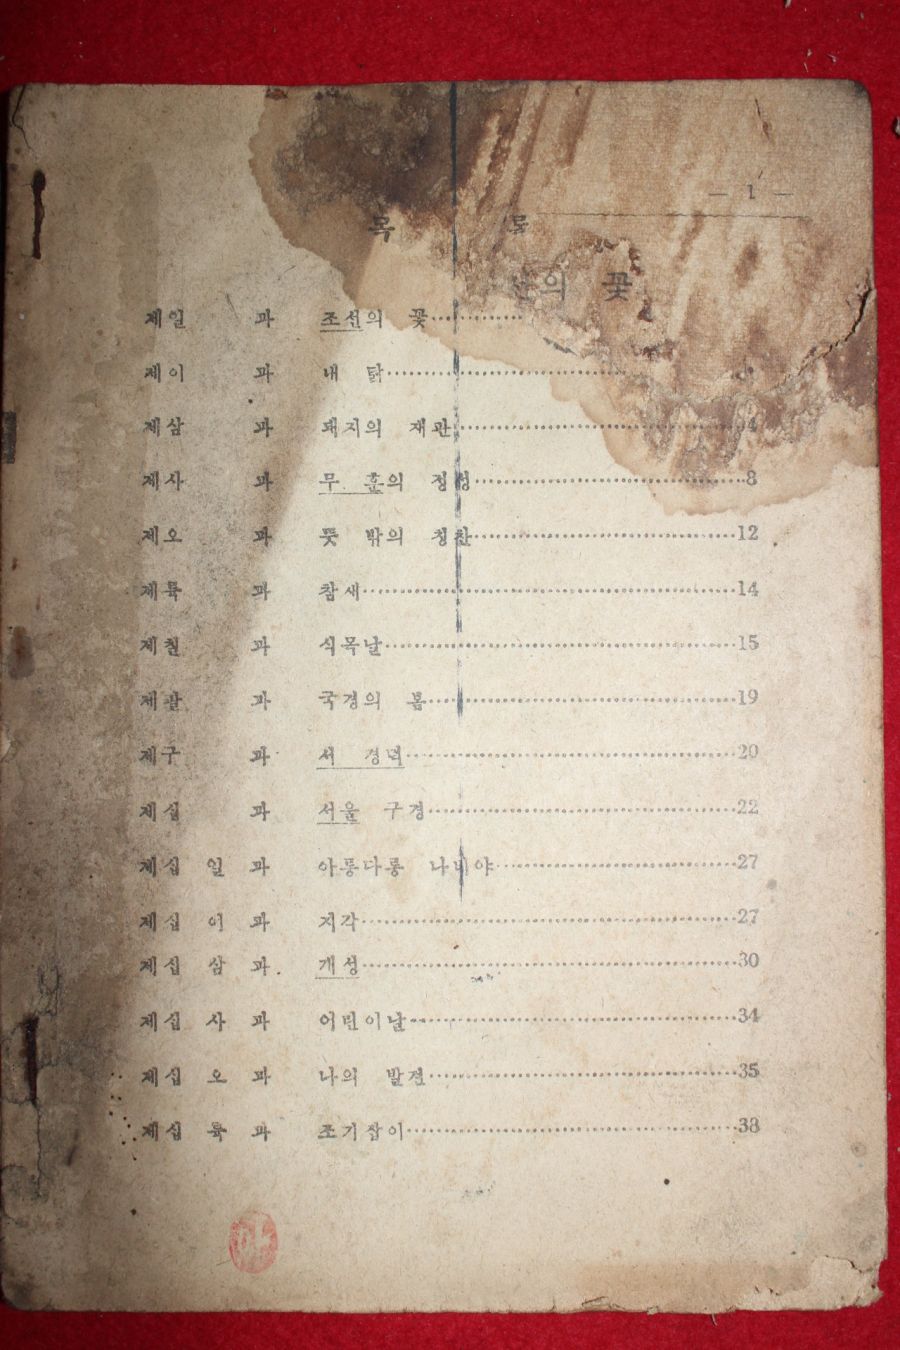 — 1 —
목 록
의 꽃
제일 과 조선의 꽃…………
제이 과 내 닭…………………………
제삼 과 돼지의 재판…………………………4
제사 과 무 훈의 정성…………………………8
제오 과 뜻 밖의 칭찬…………………………12
제륙 과 참새…………………………14
제칠 과 식목날…………………………15
제팔 과 국경의 봄…………………………19
제구 과 서 경덕…………………………20
제십 과 서울 구경…………………………22
제십 일 과 아롱다롱 나비야…………………………27
제십 이 과 지각…………………………27
제십 삼 과 개성…………………………30
제십 사 과 어린이날…………………………34
제십 오 과 나의 발견…………………………35
제십 륙 과 조기잡이…………………………38